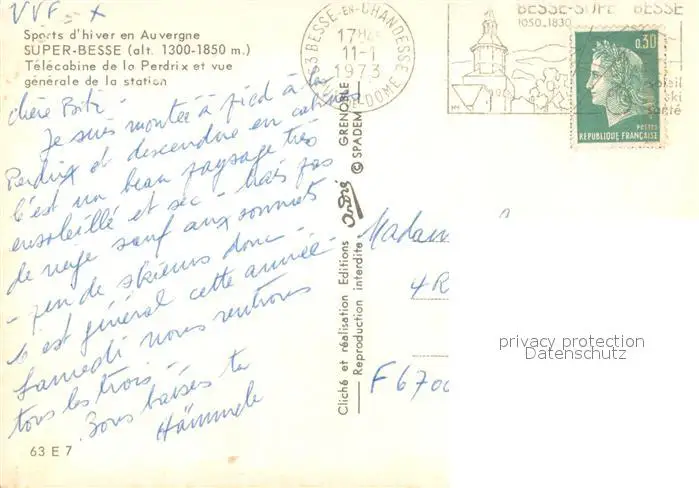 VVF
Sports d'hiver en Auvergne
SUPER-BESSE (alt. 1300-1850 m.)
Télécabine de la Perdrix et vue
générale de la station
Chère
Je suis montée à pied à la
Perdrix et descendue en cabine
C'est un beau paysage très
ensoleillé et sec - mais pas
de neige sauf aux sommets
- peu de skieurs donc -
C'est général cette année -
Samedi nous rentrons
tous les trois -
Bons baisers ta
63 E 7
63 BESSE-EN-CHANDESSE
17H45
11-1
1973
PUY-DE-DOME
BESSE-SUPER BESSE
1050-1830
soleil
ski
santé
0,30
POSTES
REPUBLIQUE FRANÇAISE
Cliché et réalisation Editions André GRENOBLE
Reproduction interdite © SPADEM
Madam
4 R
F 6700
privacy protection
Datenschutz